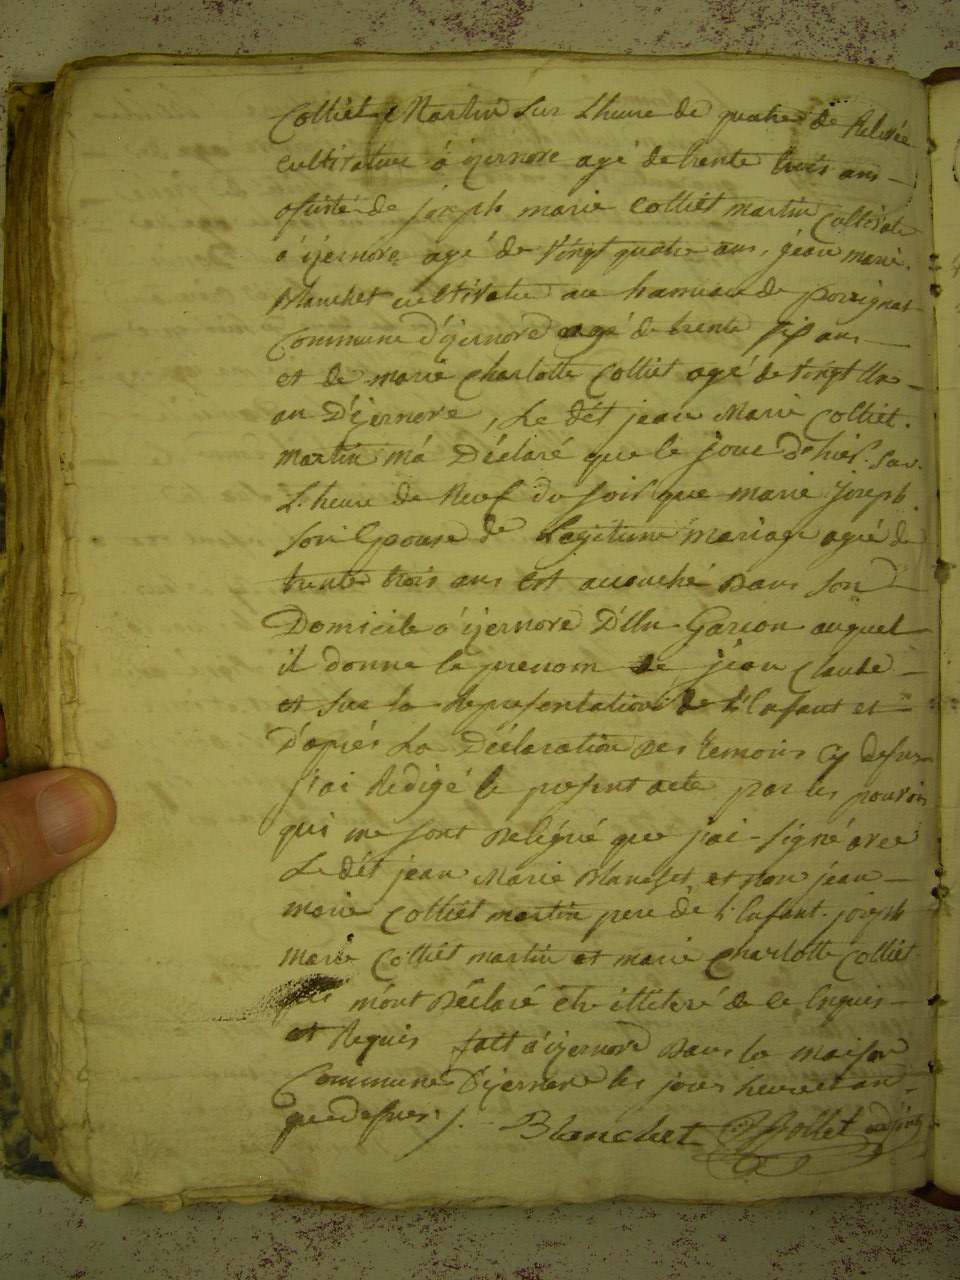 Colliet Martin Sur Lheure de quatre de Relevée
cultivateur á izernore agé de trente trois ans
assisté de joseph marie colliet martin Cultivate
á izernore agé de vingt quatre ans, jean marie
Blanchet cultivateur au hameau de
Commune d'izernore agé de trente six ans
et de marie Charlotte Colliet agé de vingt Un
an D'izernore, Le dét jean Marie Colliet
martin má Déclaré que le jour d'hier Sur
L'heure de Neuf du soir que marie joseph
son Epouse de Legitime mariage agée de
trente trois ans est accouché dans son
Domicile á izernore D'Un Garcon auquel
il donne le prenom de jean Claude
et sur la Representation de L'Enfant et
D'aprés La Déclaration des temoins cy dessus
j'ai Redigé le present acte par les pouvoirs
qui me sont delégué que j'ai signé avec
Le dét jean Marie Blanchet et non jéan
marie Colliet martin pere de L'Enfant joseph
marie Colliet martin et marie Charlotte Colliet
m'ont déclaré étre illiteré de ce Enquis
et Requis fait á izernore dans la maison
Commune D'izernore les jour heure et an
que dessus /. Blanchet